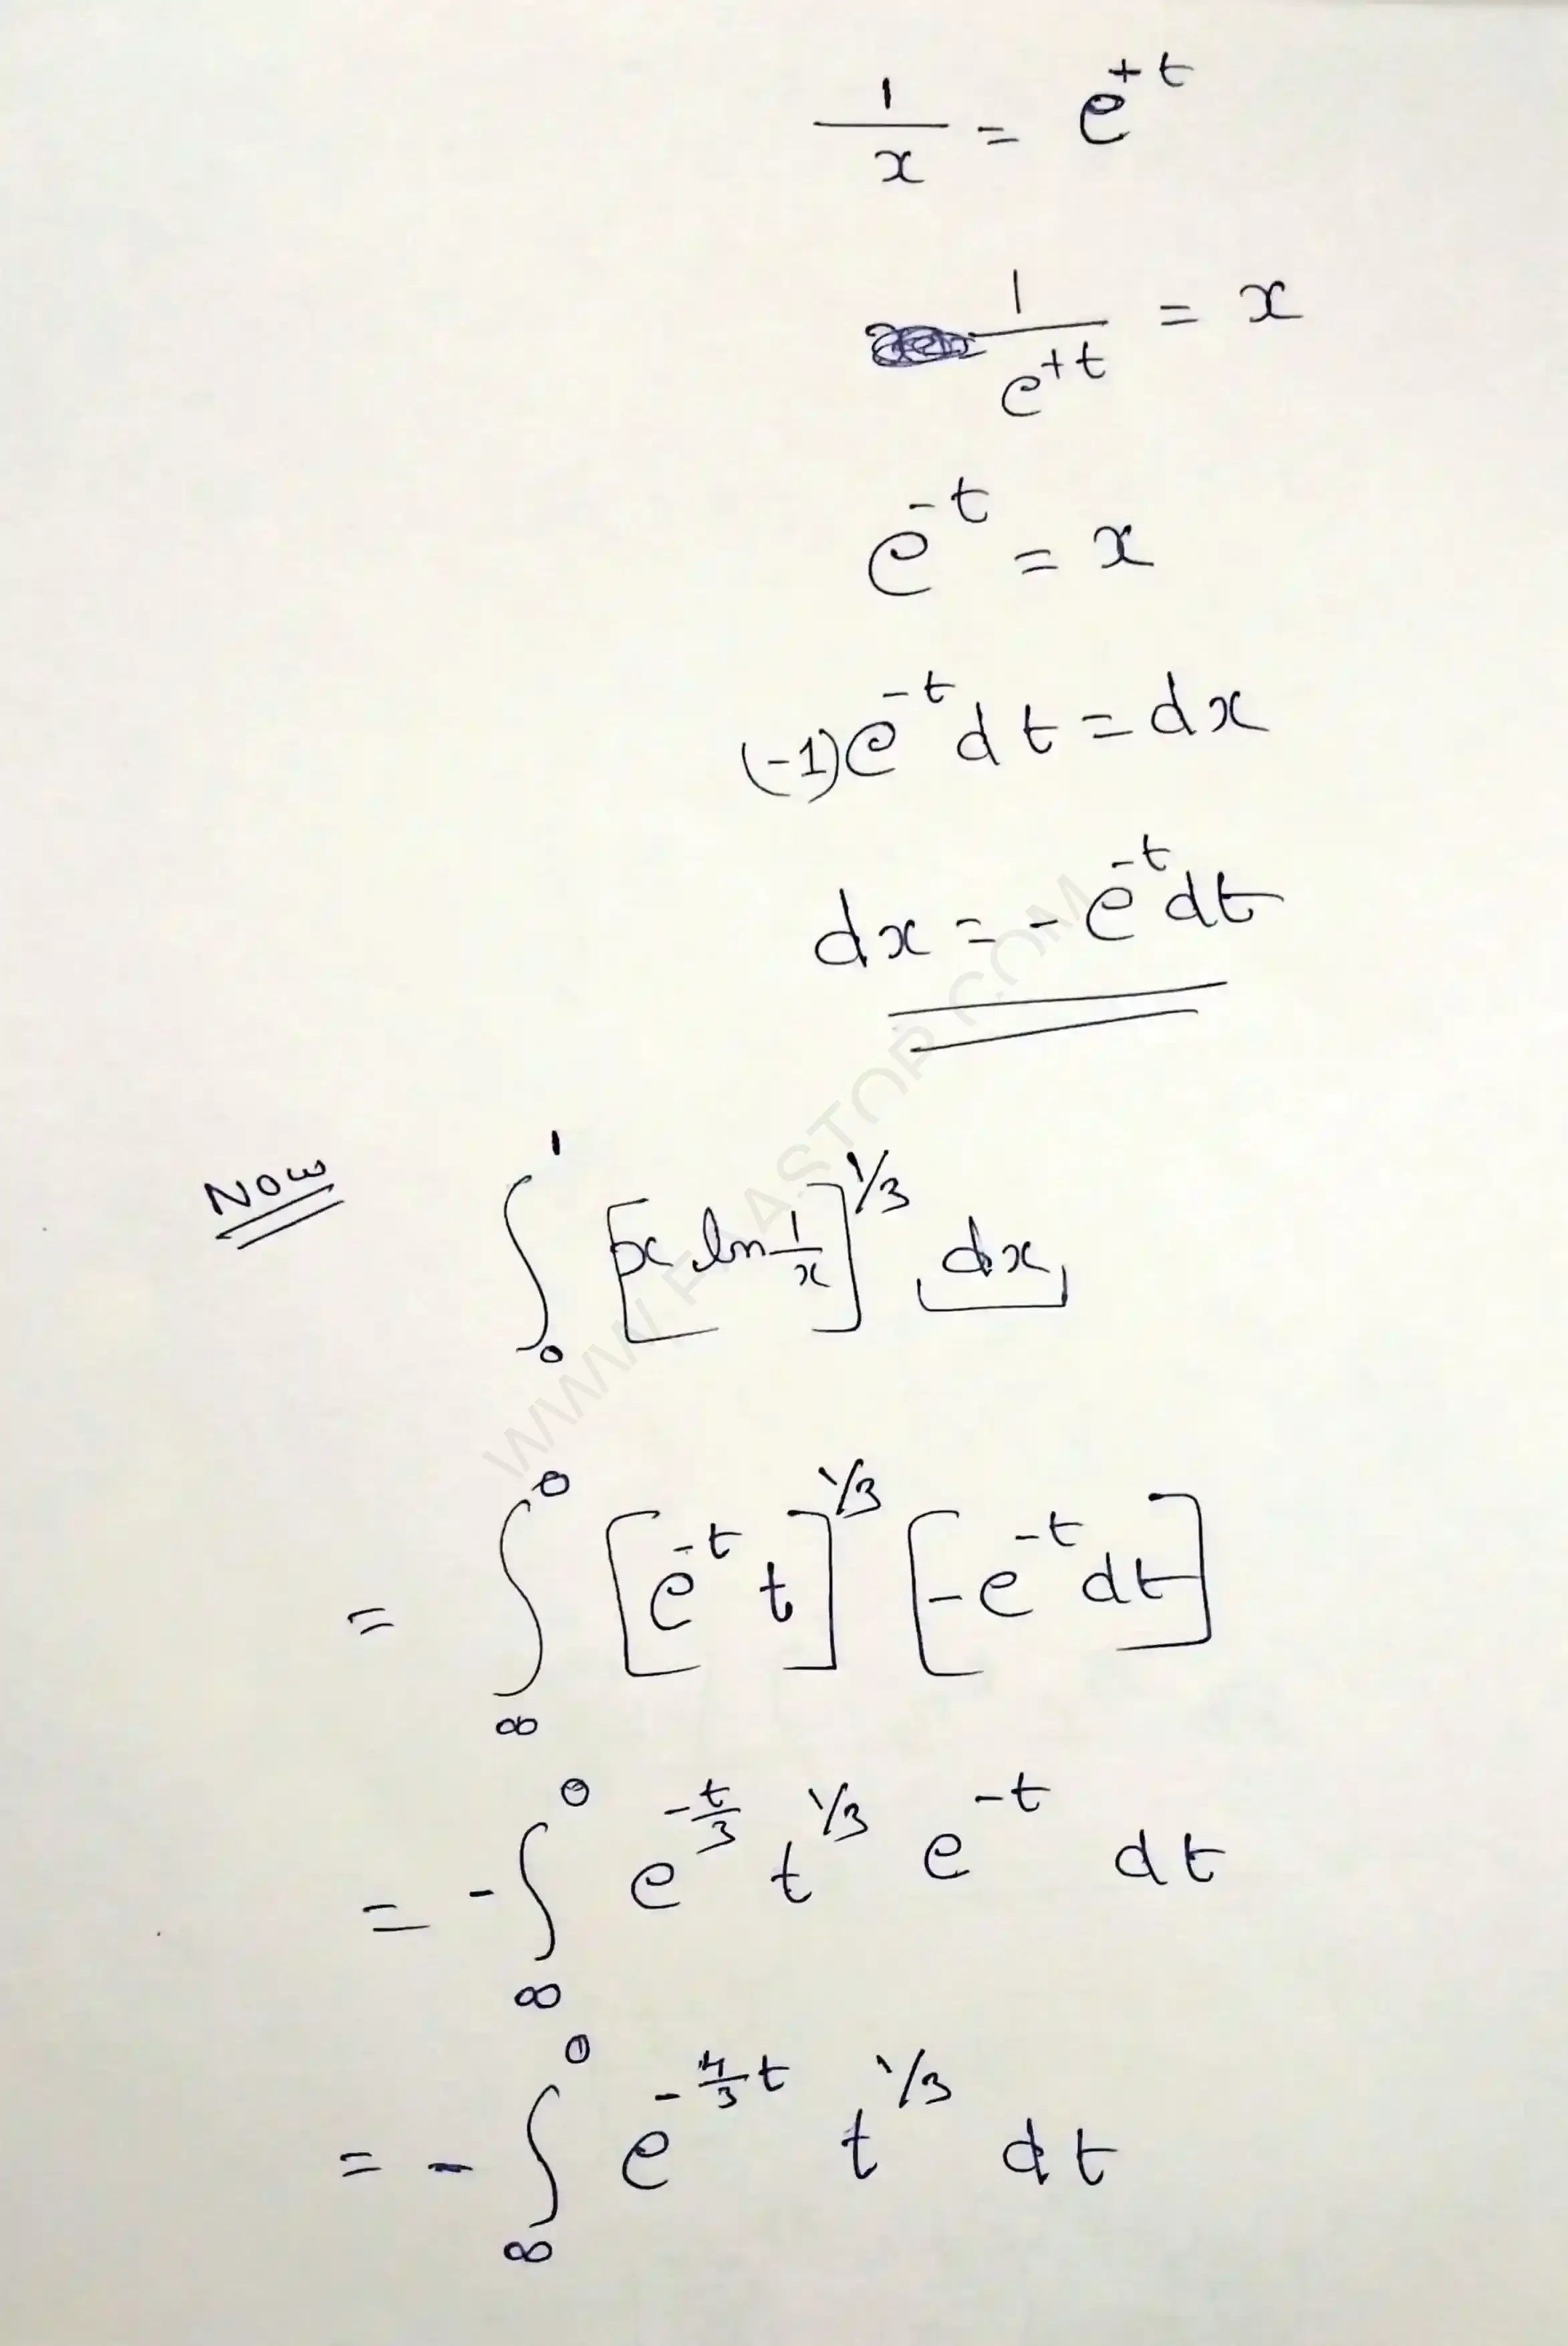 1/x = e^{+t}
1/e^{+t} = x
e^{-t} = x
(-1)e^{-t} dt = dx
dx = -e^{-t} dt
Now ∫_0^1 [x ln 1/x]^{1/3} dx
= ∫_∞^0 [e^{-t} t]^{1/3} [-e^{-t} dt]
= -∫_∞^0 e^{-t/3} t^{1/3} e^{-t} dt
= -∫_∞^0 e^{-4/3 t} t^{1/3} dt